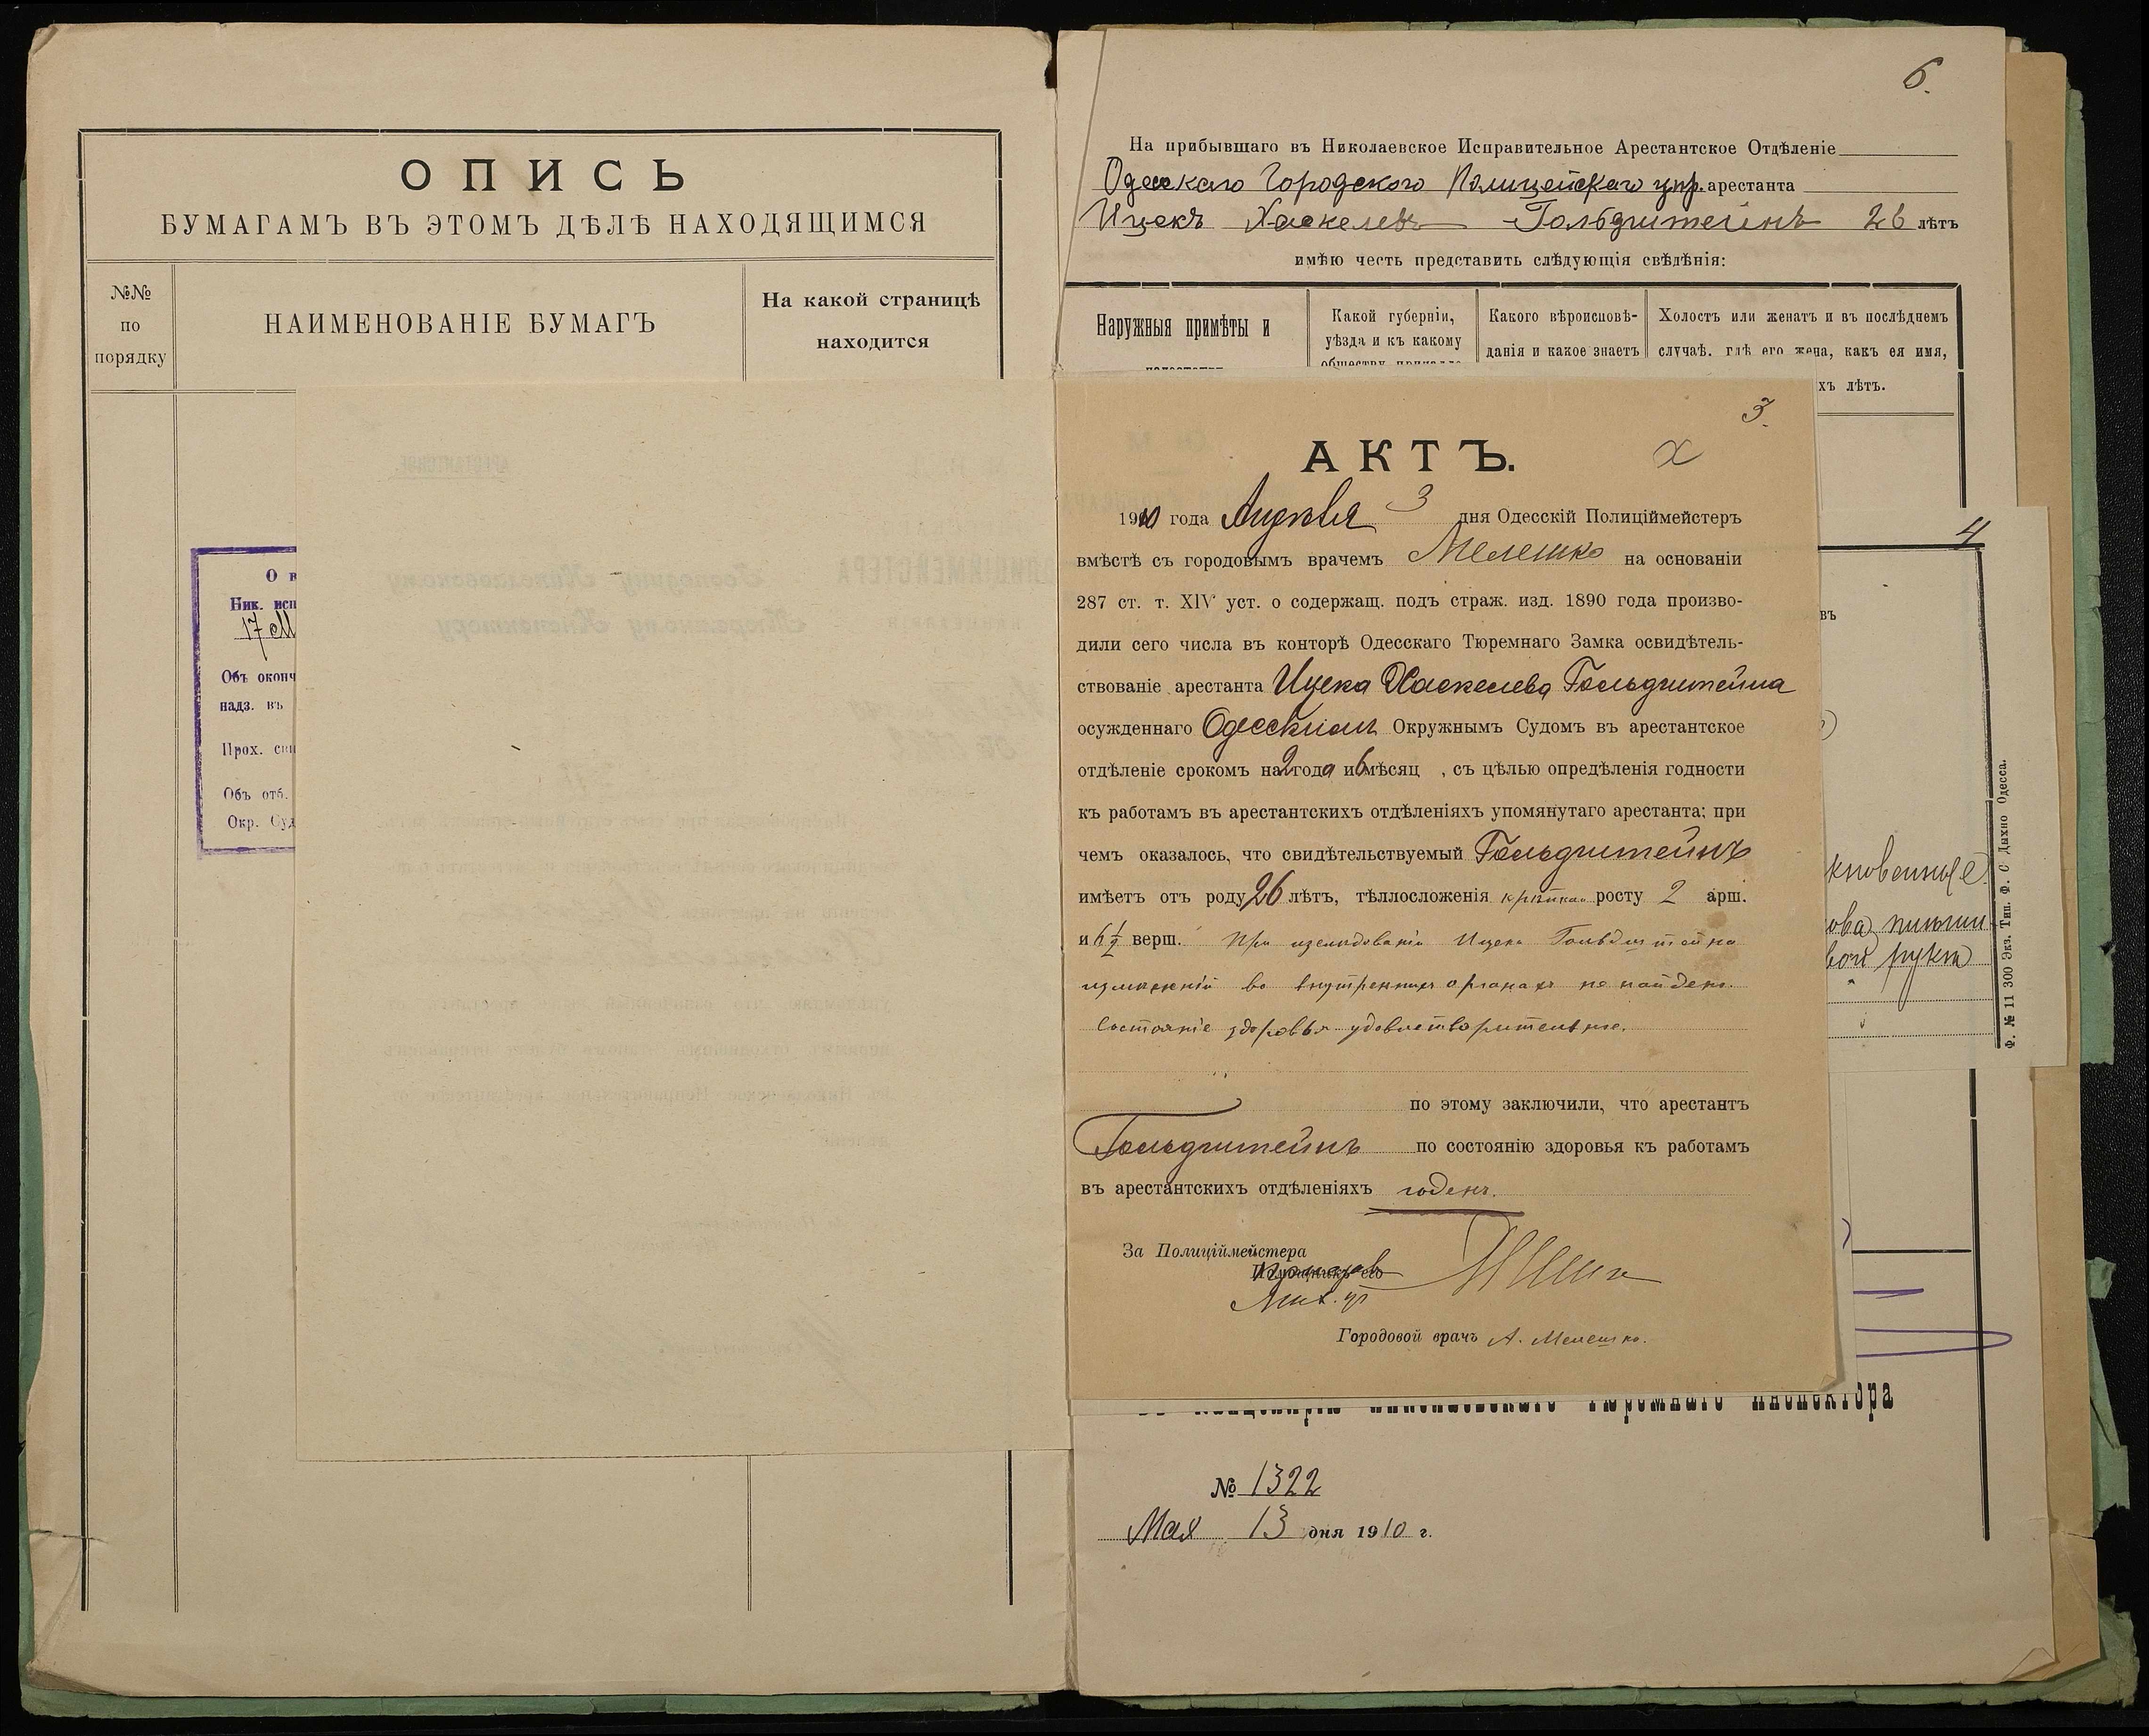 ОПИСЬ
БУМАГАМЪ ВЪ ЭТОМЪ ДѢЛѢ НАХОДЯЩИМСЯ
№№
по
порядку
НАИМЕНОВАНІЕ БУМАГЪ
На какой страницѣ
находится
О в
Ник. исп
17 М
Объ оконч
надз. въ
Прох. спи
Объ отб.
Окр. Суд
6.
На прибывшаго въ Николаевское Исправительное Арестантское Отдѣленіе
Одесскаго Городского Полицейскаго упр. арестанта
Ицекъ Хаскелевъ Гольдштейнъ 26 лѣтъ
имѣю честь представить слѣдующія свѣдѣнія:
Наружныя примѣты и
Какой губерніи,
уѣзда и къ какому
Какого вѣроисповѣ-
данія и какое знаетъ
Холостъ или женатъ и въ послѣднемъ
случаѣ, гдѣ его жена, какъ ея имя,
хъ лѣтъ.
3.
АКТЪ.
1910 года Апрѣля 3 дня Одесскій Полиціймейстеръ
вмѣстѣ съ городовымъ врачемъ Мелешко на основаніи
287 ст. т. XIV уст. о содержащ. подъ страж. изд. 1890 года произво-
дили сего числа въ конторѣ Одесскаго Тюремнаго Замка освидѣтель-
ствованіе арестанта Ицека Хаскелева Гольдштейна
осужденнаго Одесскимъ Окружнымъ Судомъ въ арестантское
отдѣленіе срокомъ на 2 года и 6 мѣсяц , съ цѣлью опредѣленія годности
къ работамъ въ арестантскихъ отдѣленіяхъ упомянутаго арестанта; при
чемъ оказалось, что свидѣтельствуемый Гольдштейнъ
имѣетъ отъ роду 26 лѣтъ, тѣллосложенія крѣпкаго росту 2 арш.
и 6 1/2 верш. При изслѣдованіи Ицека Гольдштейна
измѣненій во внутреннихъ органахъ не найдено.
Состояніе здоровья удовлетворительное.
по этому заключили, что арестантъ
Гольдштейнъ по состоянію здоровья къ работамъ
въ арестантскихъ отдѣленіяхъ годенъ.
За Полиціймейстера
Помощникъ его
Городовой врачъ А. Мелешко.
4
въ
кновенные
Ф. № 11 300 Экз. Тип. Ф. С Дахно Одесса.
Тюремнаго Инспектора
№ 1322
Мая 13 дня 1910 г.